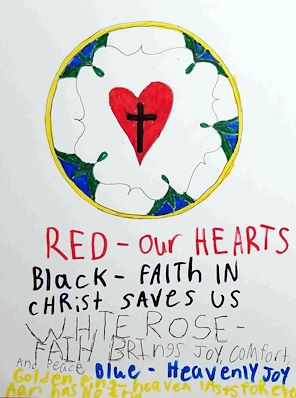 RED - our HEARTS
Black - FAITH IN
CHRist SAVES US
WHITE ROSE -
FAIH BRINgs JOY, COMfort,
And peace Blue - HeaveNly JOY
Golden Ring - heaven lasts foR
has No End